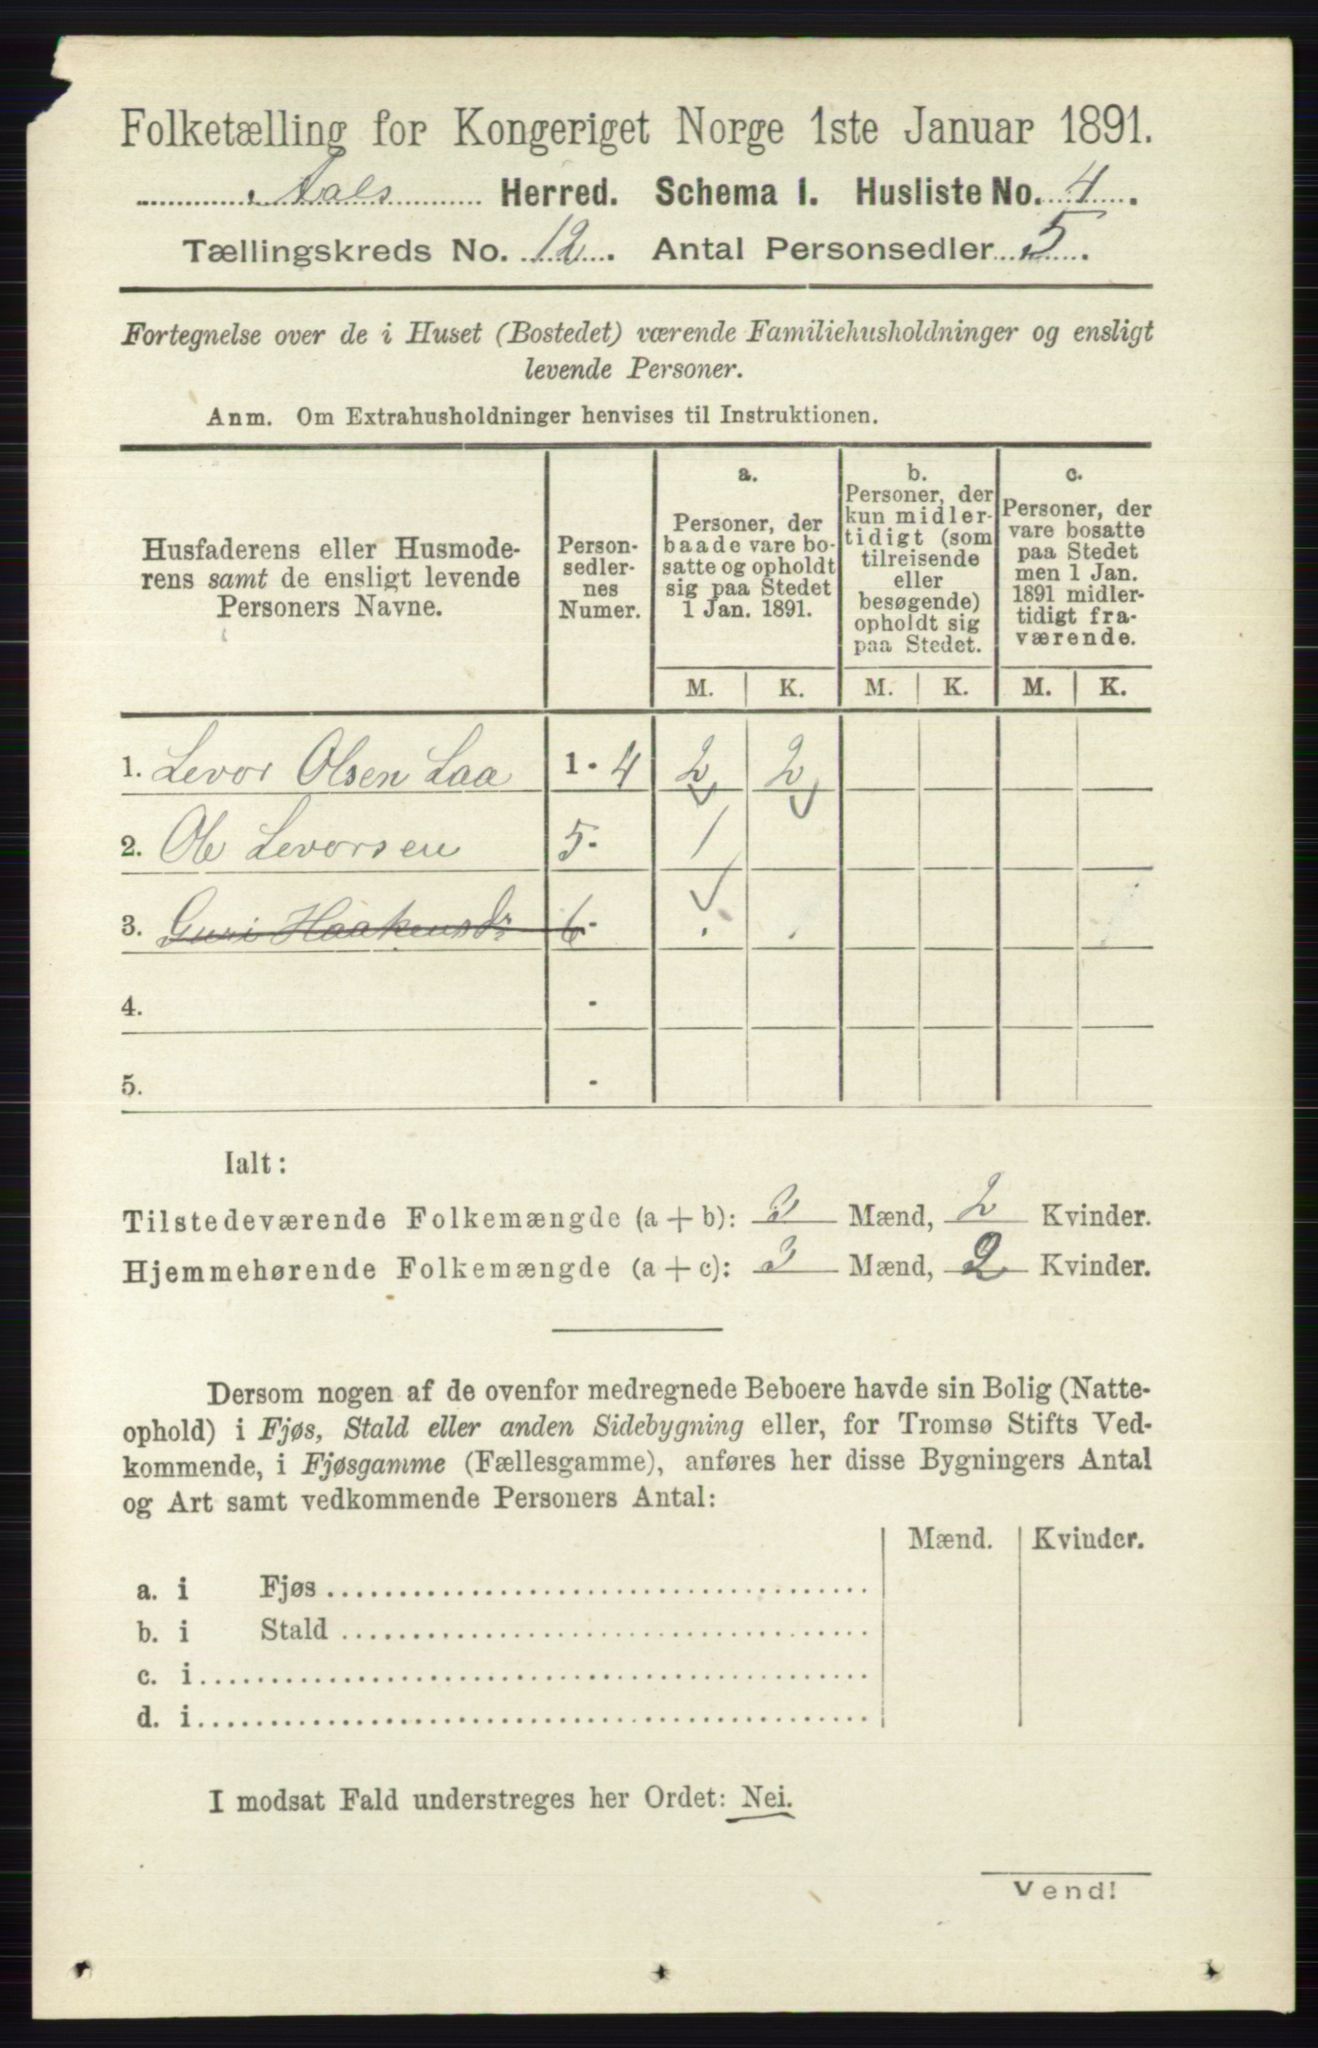 Folketælling for Kongeriget Norge 1ste Januar 1891.
Aals Herred. Schema I. Husliste No. 4.
Tællingskreds No. 12. Antal Personsedler 5.
Fortegnelse over de i Huset (Bostedet) værende Familiehusholdninger og ensligt
levende Personer.
Anm. Om Extrahusholdninger henvises til Instruktionen.
Husfaderens eller Husmode-
rens samt de ensligt levende
Personers Navne.
Person-
sedler-
nes
Numer.
a.
Personer, der
baade vare bo-
satte og opholdt
sig paa Stedet
1 Jan. 1891.
b.
Personer, der
kun midler-
tidigt (som
tilreisende
eller
besøgende)
opholdt sig
paa Stedet.
c.
Personer, der
vare bosatte
paa Stedet
men 1 Jan.
1891 midler-
tidigt fra-
værende.
M. K. M. K. M. K.
1. Levor Olsen Laa 1-4 2 2
2. Ole Levorsen 5- 1
3. Guri Haakensdr 6-
4. -
5. -
Ialt:
Tilstedeværende Folkemængde (a + b): 3 Mænd, 2 Kvinder.
Hjemmehørende Folkemængde (a + c): 3 Mænd, 2 Kvinder.
Dersom nogen af de ovenfor medregnede Beboere havde sin Bolig (Natte-
ophold) i Fjøs, Stald eller anden Sidebygning eller, for Tromsø Stifts Ved-
kommende, i Fjøsgamme (Fællesgamme), anføres her disse Bygningers Antal
og Art samt vedkommende Personers Antal:
Mænd. Kvinder.
a. i Fjøs
b. i Stald
c. i
d. i
I modsat Fald understreges her Ordet: Nei.
Vend!